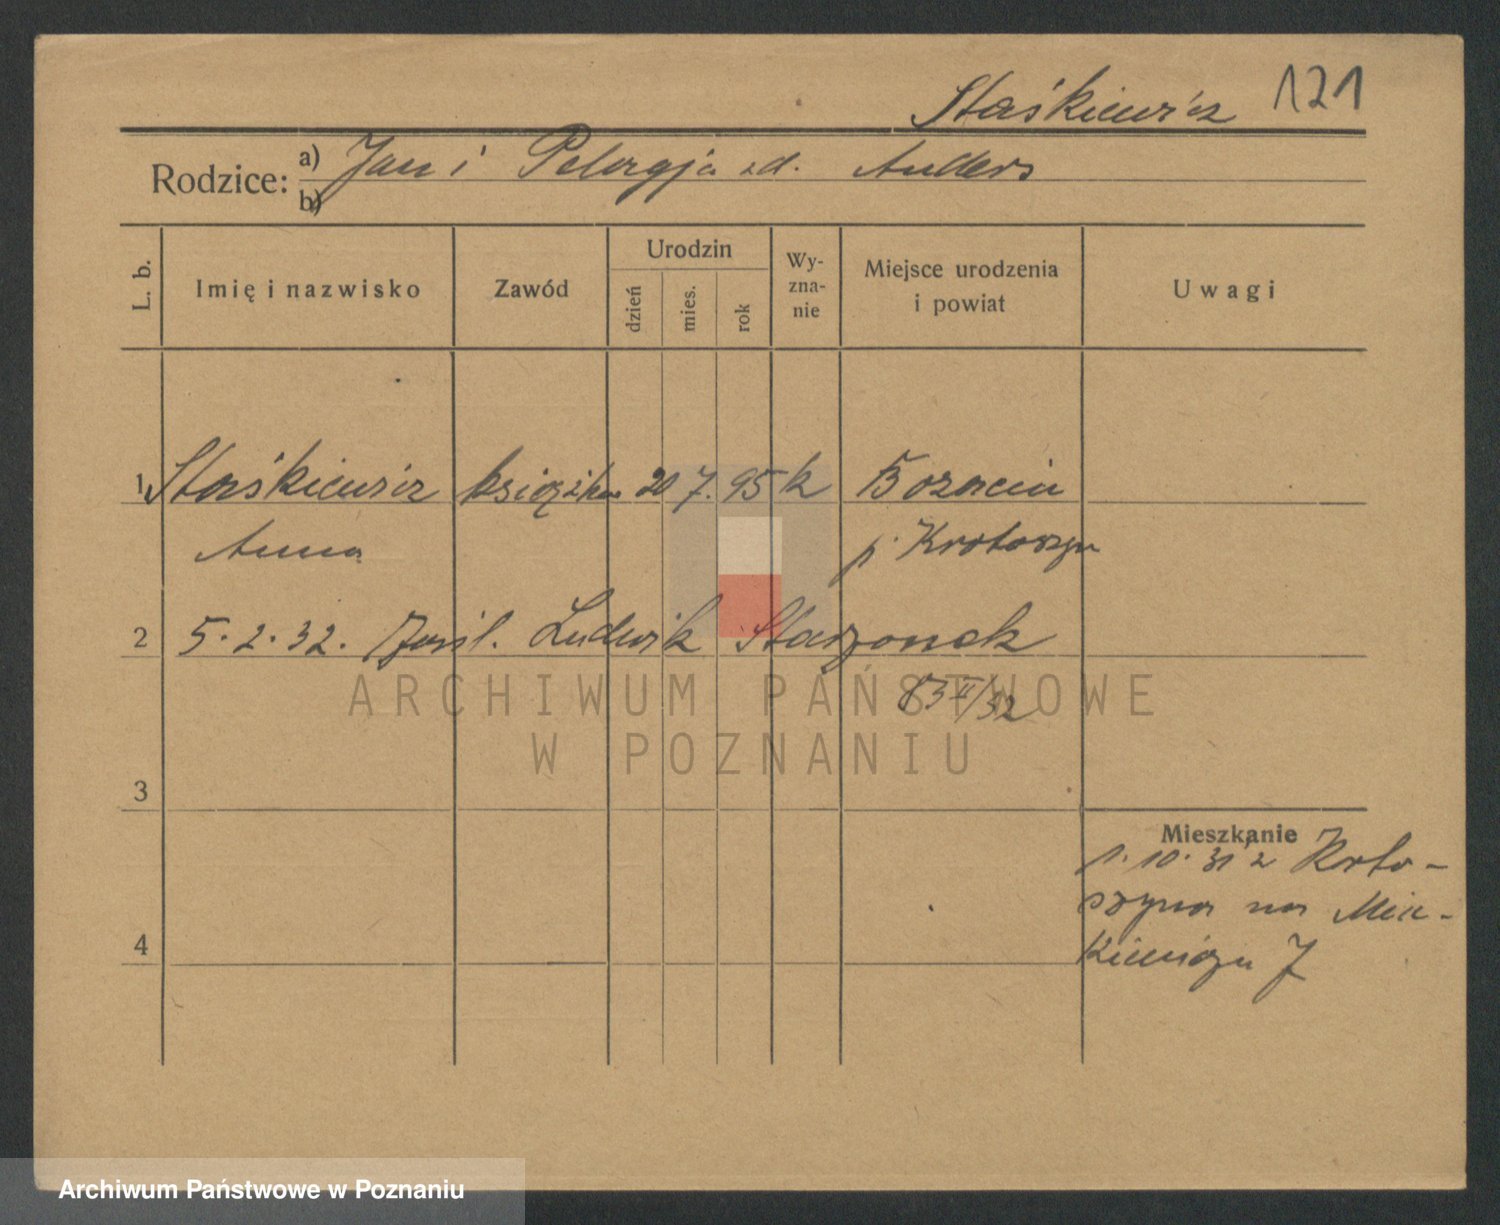 Staśkiewicz 121
Rodzice: a) Jan i Pelagja zd. Anders
b)
L. b. Imię i nazwisko Zawód Urodzin dzień mies. rok Wy-zna-nie Miejsce urodzenia i powiat Uwagi
1 Staśkiewicz 20 7. 95 k Bozacin
Anna p. Krotoszyn
2 5. 2. 32. Ludwik
ARCHIWUM PAŃSTWOWE
W POZNANIU
3
Mieszkanie
1. 10. 31 z Kroto-
szyna na Mic-
4 kiewicza 7
Archiwum Państwowe w Poznaniu